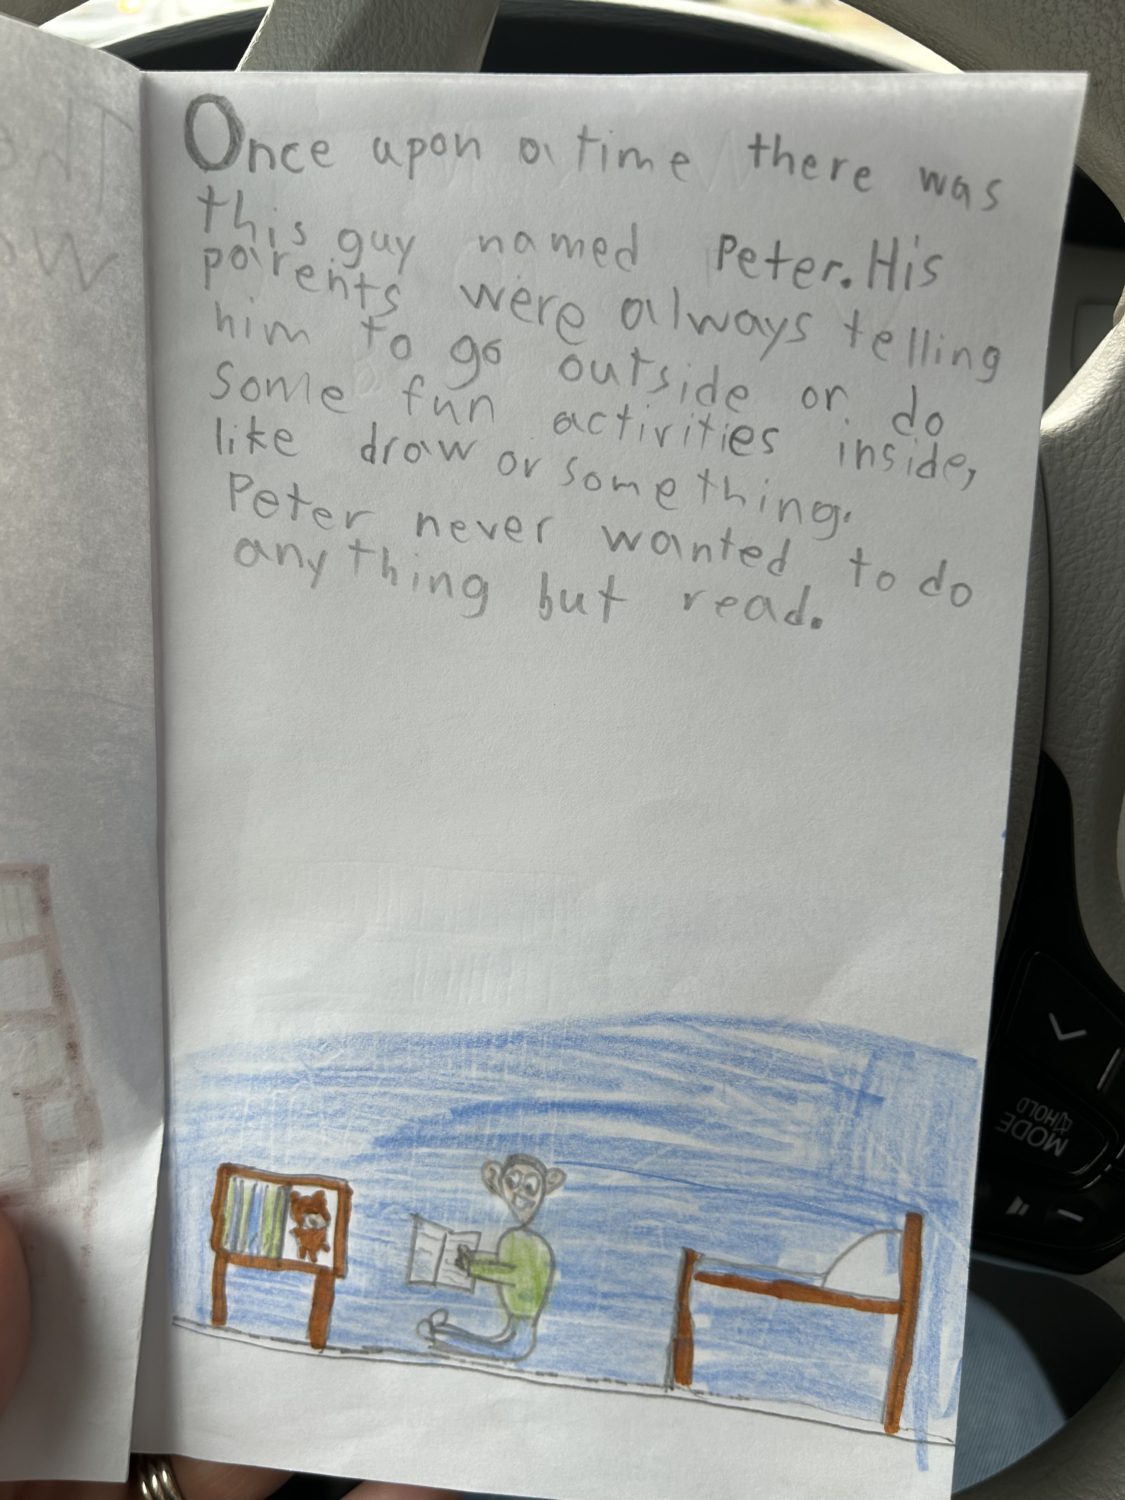 Once upon a time there was
this guy named Peter. His
parents were always telling
him to go outside or do
some fun activities inside,
like draw or something.
Peter never wanted to do
anything but read.
MODE
HOLD